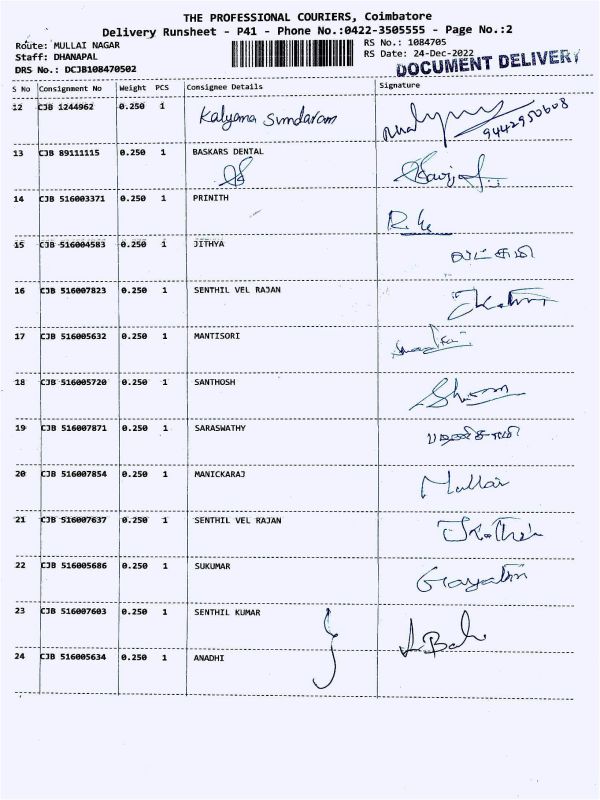 THE PROFESSIONAL COURIERS, Coimbatore
Delivery Runsheet - P41 - Phone No.:0422-3505555 - Page No.:2
Route: MULLAI NAGAR
RS No.: 1084705
Staff: DHANAPAL
RS Date: 24-Dec-2022
DRS No.: DCJB108470502
DOCUMENT DELIVERY
S No Consignment No Weight PCS Consignee Details Signature
12 CJB 1244962 0.250 1 Kalyana Sundaram
9442950608
13 CJB 89111115 0.250 1 BASKARS DENTAL
14 CJB 516003371 0.250 1 PRINITH
15 CJB 516004583 0.250 1 JITHYA
16 CJB 516007823 0.250 1 SENTHIL VEL RAJAN
17 CJB 516005632 0.250 1 MANTISORI
18 CJB 516005720 0.250 1 SANTHOSH
19 CJB 516007871 0.250 1 SARASWATHY
20 CJB 516007854 0.250 1 MANICKARAJ
Mullai
21 CJB 516007637 0.250 1 SENTHIL VEL RAJAN
22 CJB 516005686 0.250 1 SUKUMAR
Gayathri
23 CJB 516007603 0.250 1 SENTHIL KUMAR
24 CJB 516005634 0.250 1 ANADHI